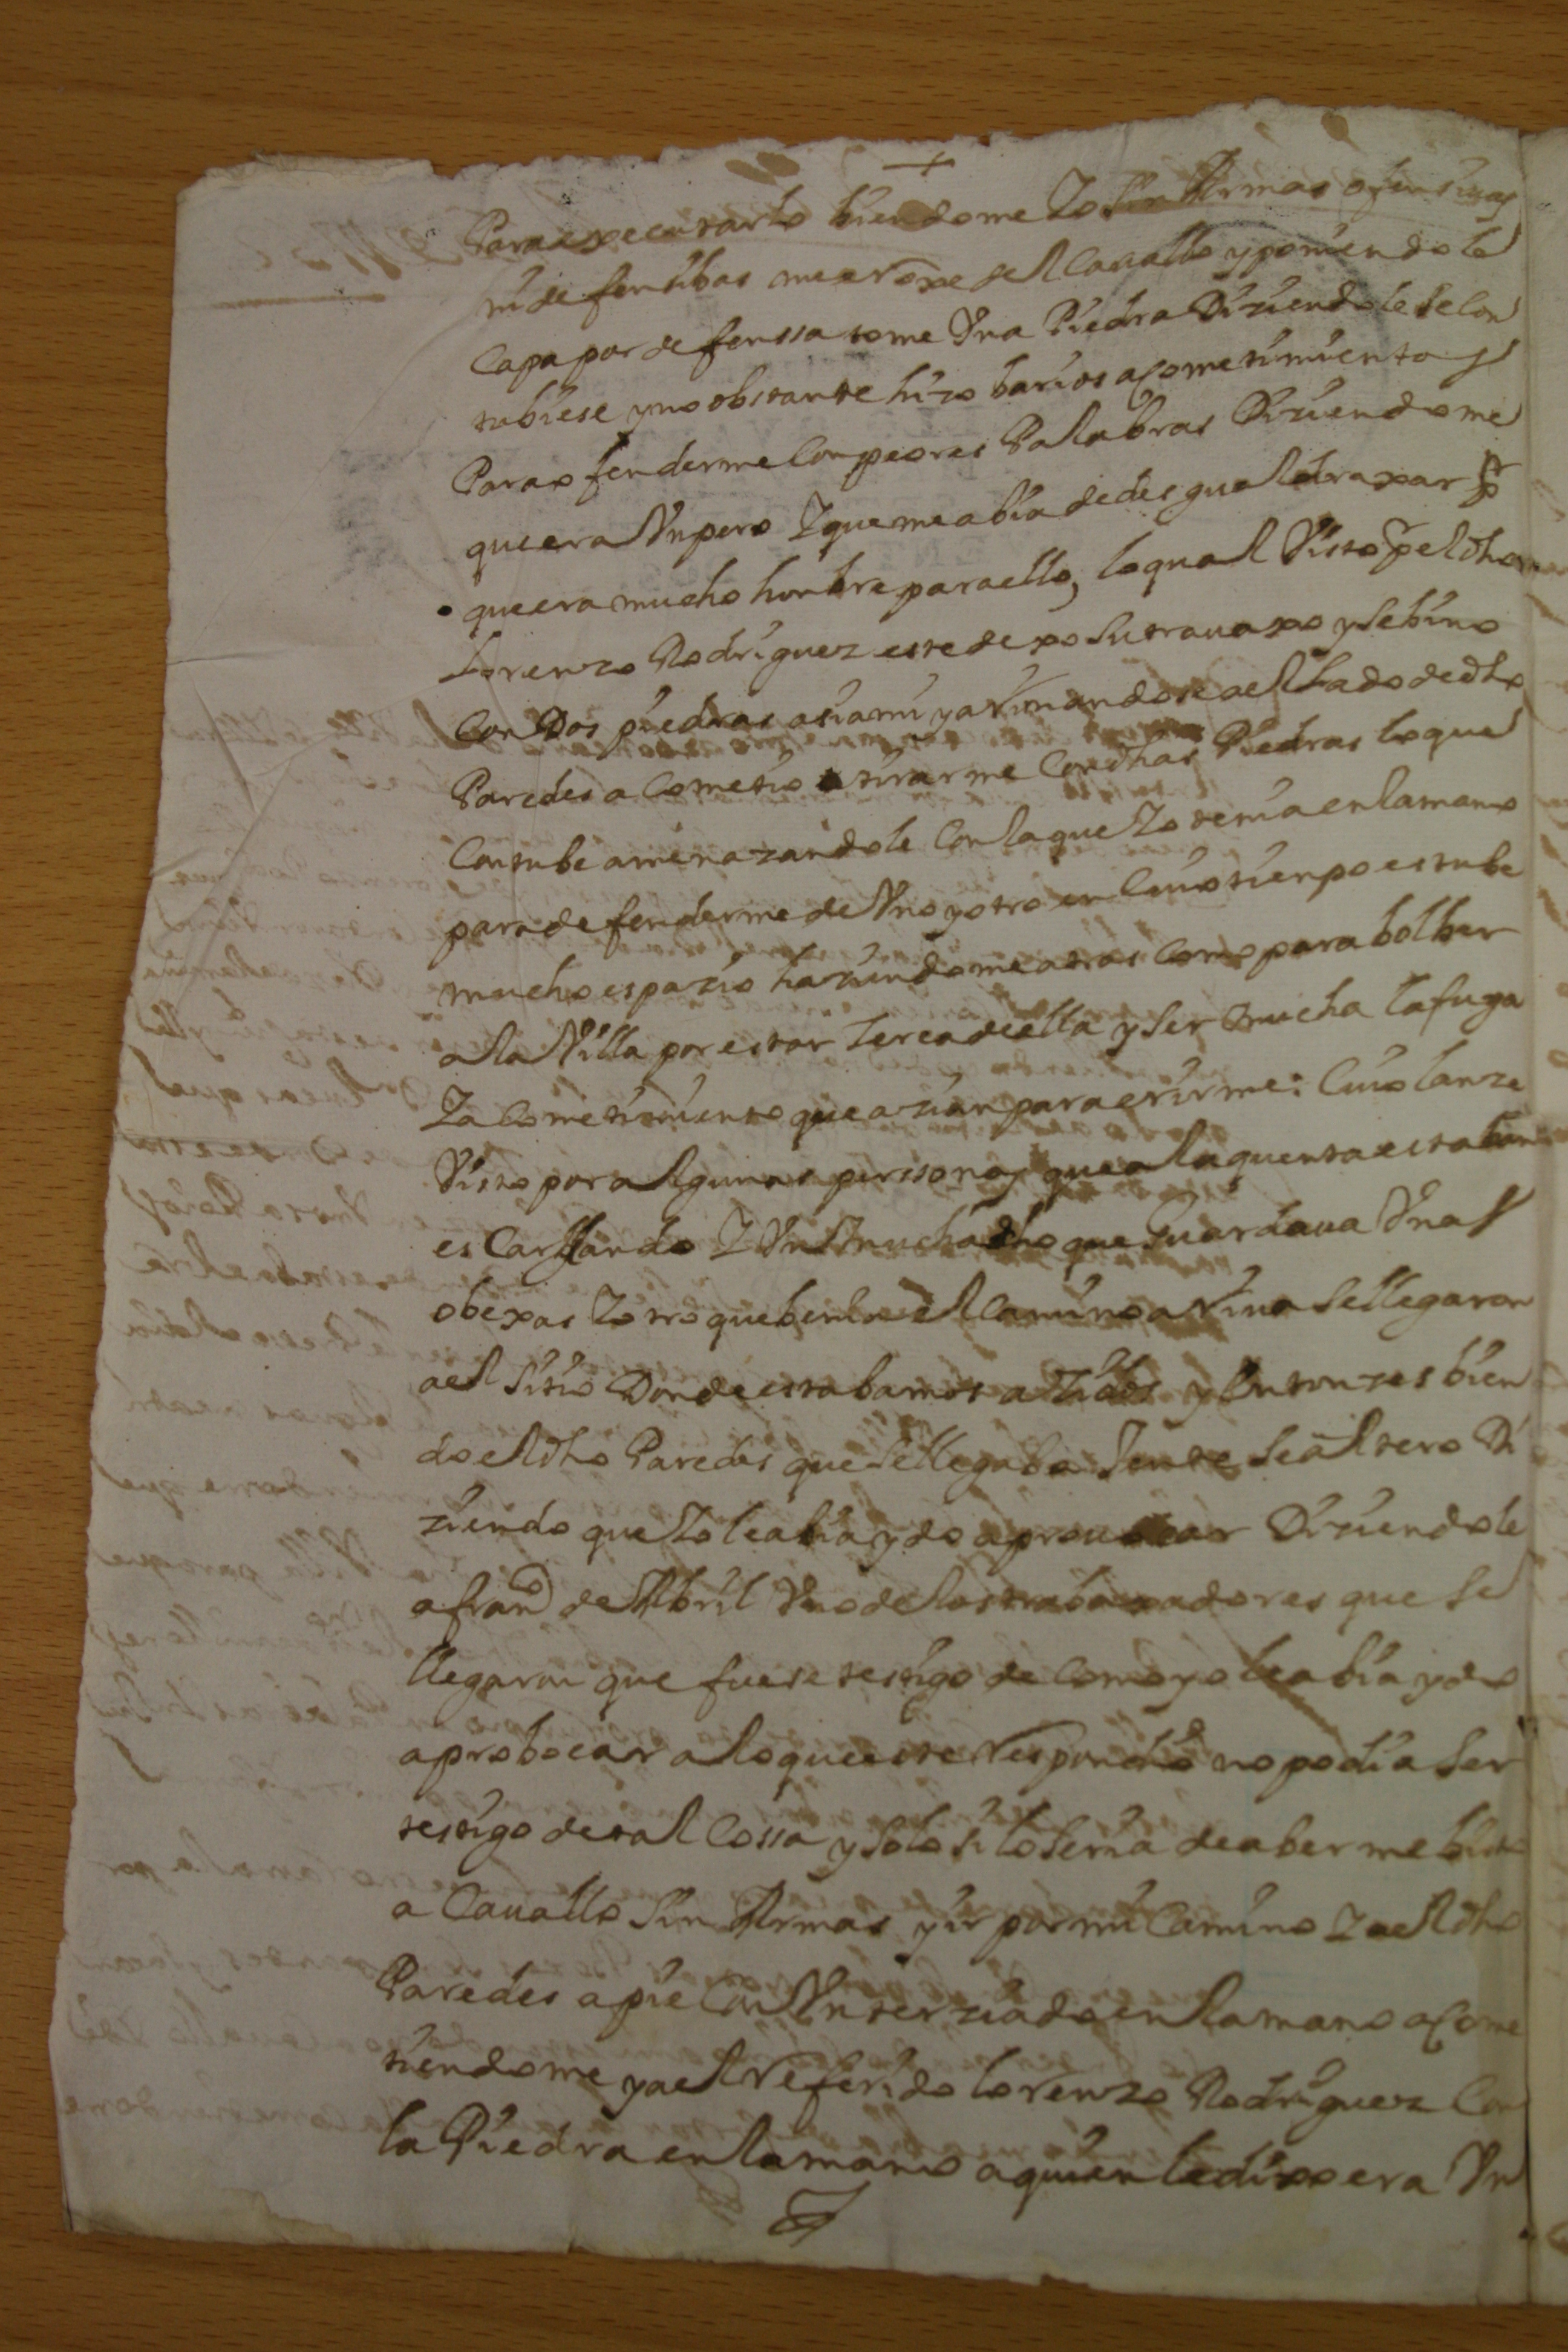 +
Para executarlo biendome Yo sin Armas ofensivas
ni defensibas me arroxe del Cavallo y poniendo la
Capa por defenssa tome Una Piedra Diziendole se Con
tubiese y no obstante hizo barios acometimientos
Para ofenderme Con peores Palabras Diziendome
que era Un pero Y que me abia de desgualdraxar pr
que era mucho honbre para ello, lo qual Visto pr el dho
Lorenzo Rodriguez este dexo su travaxo y se bino
Con Dos piedras asia mi y arrimandose a el Lado de dho
Paredes a Cometio a tirarme Con dhas Piedras lo que
Contube amenazandole Con la que Yo tenia en la mano
para defenderme de Uno y otro en Cuio tienpo estube
mucho espazio haziendome atras Como para bolber
a la Villa por estar Zerca de ella y ser mucha la fuga
Y a Cometimiento que azian para erirme: Cuio lanze
Visto por algunas perssonas que a la quenta estaban
es Carllando Y Un muchacho que Guardava Unas
obexas Y otro que benia el Camino arriva se llegaron
a el sitio Donde estabamos y Entonzes bien
do el dho Paredes que se llegaba Jente se altero Di
ziendo que Yo le abia ydo a provocar Diziendole
a franco de Abril Uno de los trabaxadores que se
llegaron que fuese testigo de Como yo le abia ydo
a probocar a lo que este Respondio no podia ser
testigo de tal Cossa y solo si lo seria de aberme bisto
a Cavallo sin Armas y ir por mi Camino Y a el dho
Paredes a pie Con Un terziado en la mano a Come
tiendome y a el Referido lorenzo Rodriguez Con
la Piedra en la mano a quien le dixo era Un